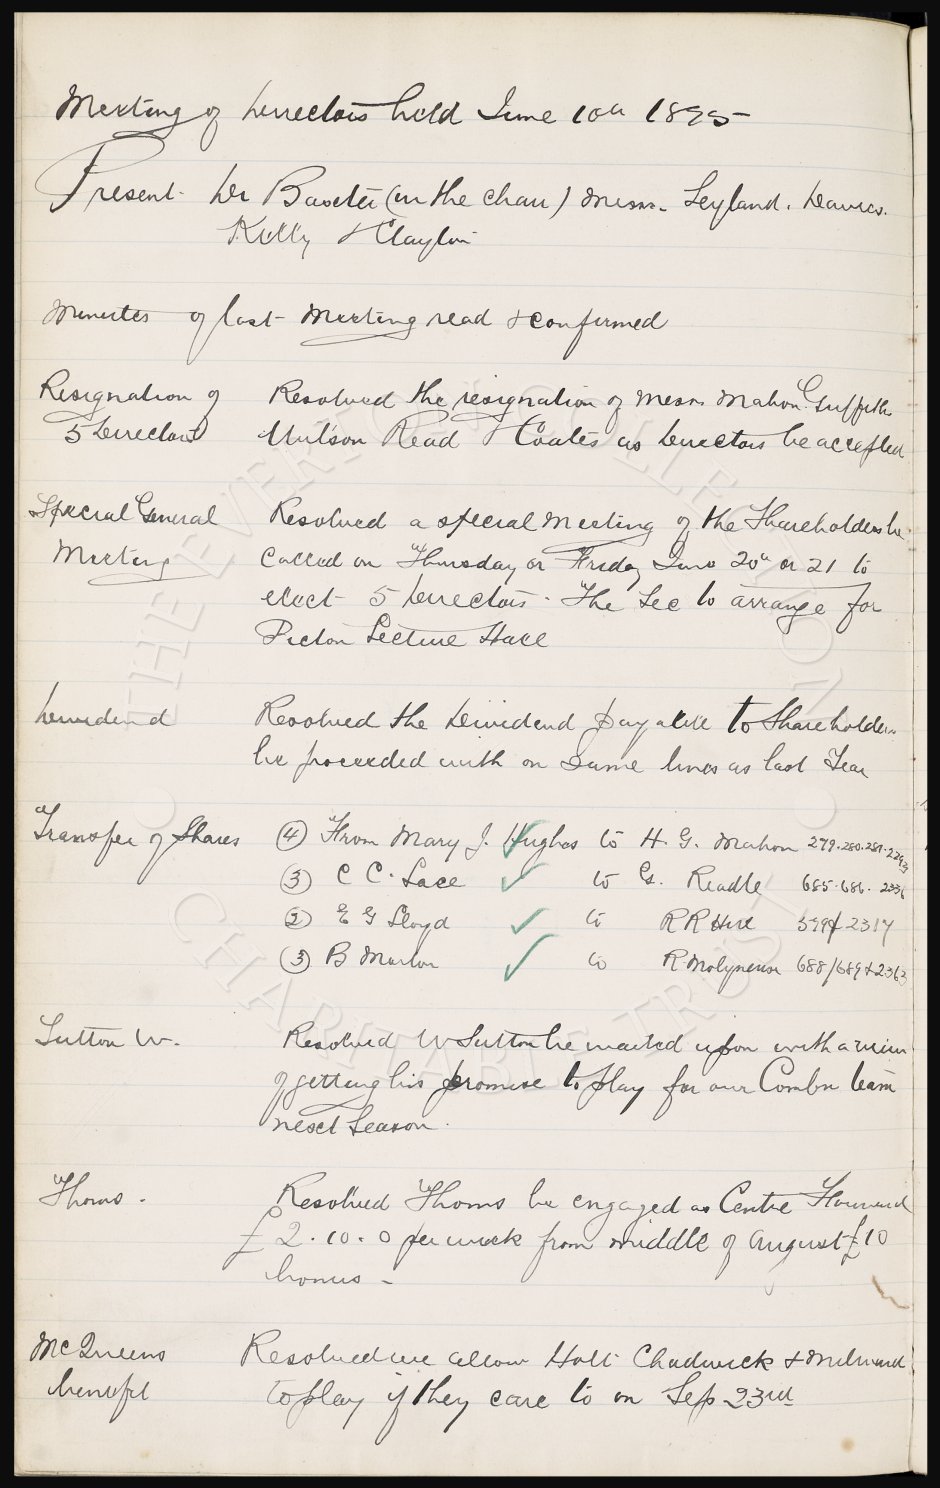 Meeting of Directors held June 10th 1895
Present Dr Baxter (in the chair) Messrs. Leyland. Davies.
Kelly & Clayton
Minutes of last Meeting read & confirmed
Resignation of Resolved the resignation of Messrs Mahon Griffiths
5 Directors Wilson Read & Coates as Directors be accepted
Special General Resolved a special meeting of the Shareholders be
Meeting called on Thursday or Friday June 20th or 21 to
elect 5 Directors. The Sec to arrange for
Picton Lecture Hall
Dividend Resolved the Dividend payable to Shareholders
be proceeded with on same lines as last Year
Transfer of Shares (4) From Mary J. Hughes to H. G. Mahon 279.280.281.
(3) C C. Lace to G. Readle 685.686. 2336
(2) E G Lloyd to R R Hire 2317
(3) B Marlor to R. Molyneux 688/689 & 2363
Sutton W. Resolved W Sutton be waited upon with a view
of getting his promise to play for our Combn team
next Season.
Thoms. Resolved Thoms be engaged as Centre Forward
£2.10.0 per week from middle of August £10
bonus -
McQueens Resolved we allow Holt Chadwick & Milward
benefit to play if they care to on Sep 23rd
THE EVERTON COLLECTION
CHARITABLE TRUST